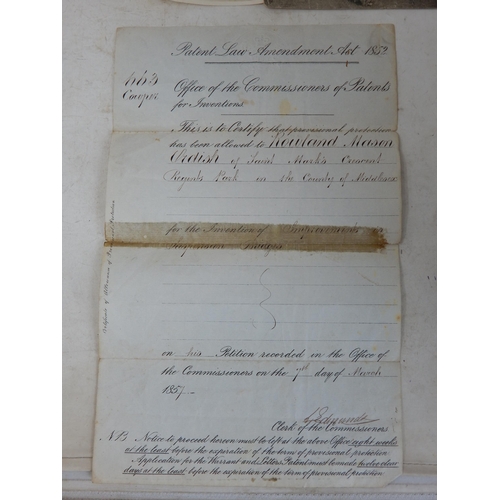 Patent Law Amendment Act 1852
663
Cowper
Office of the Commissioners of Patents
for Inventions
This is to Certify that provisional protection
has been allowed to Rowland Mason
Ordish of Saint Mark's Crescent
Regents Park in the County of Middlesex
for the Invention of Improvements in
Suspension Bridges
on his Petition recorded in the Office of
the Commissioners on the 7th day of March
1857
Clerk of the Commissioners
NB Notice to proceed hereon must be left at the above Office eight weeks
at the least before the expiration of the term of provisional protection
Application for the Warrant and Letters Patent must be made twelve clear
days at the least before the expiration of the term of provisional protection
Certificate of Allowance of Provisional Protection